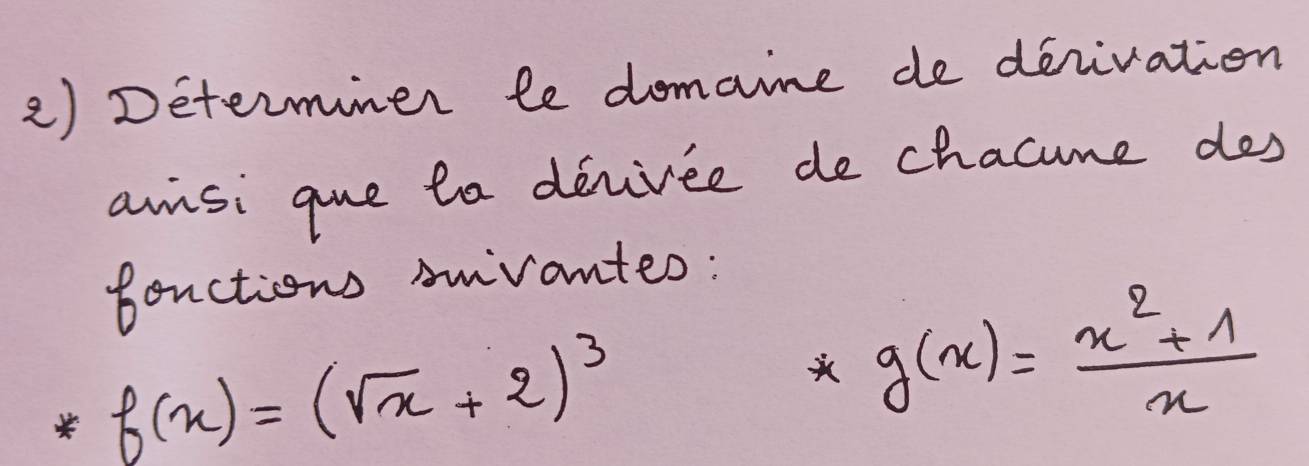 2) Déterminer le domaine de dérivation
ainsi que la dérivée de chacune des
fonctions suivantes:
* f(x) = (√x + 2)³ * g(x) = (x² + 1)/x